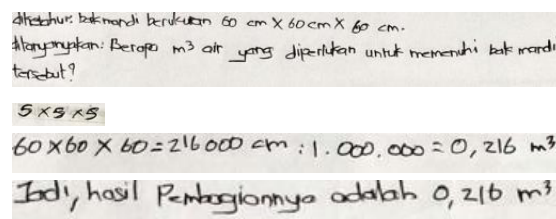 diketahui: bak mandi berukuran 60 cm X 60 cm X 60 cm.
ditanyakan: Berapa m³ air yang diperlukan untuk memenuhi bak mandi
tersebut?
5 x 5 x 5
60 X 60 X 60 = 216 000 cm : 1.000.000 = 0,216 m³
Jadi, hasil Pembagiannya adalah 0,216 m³